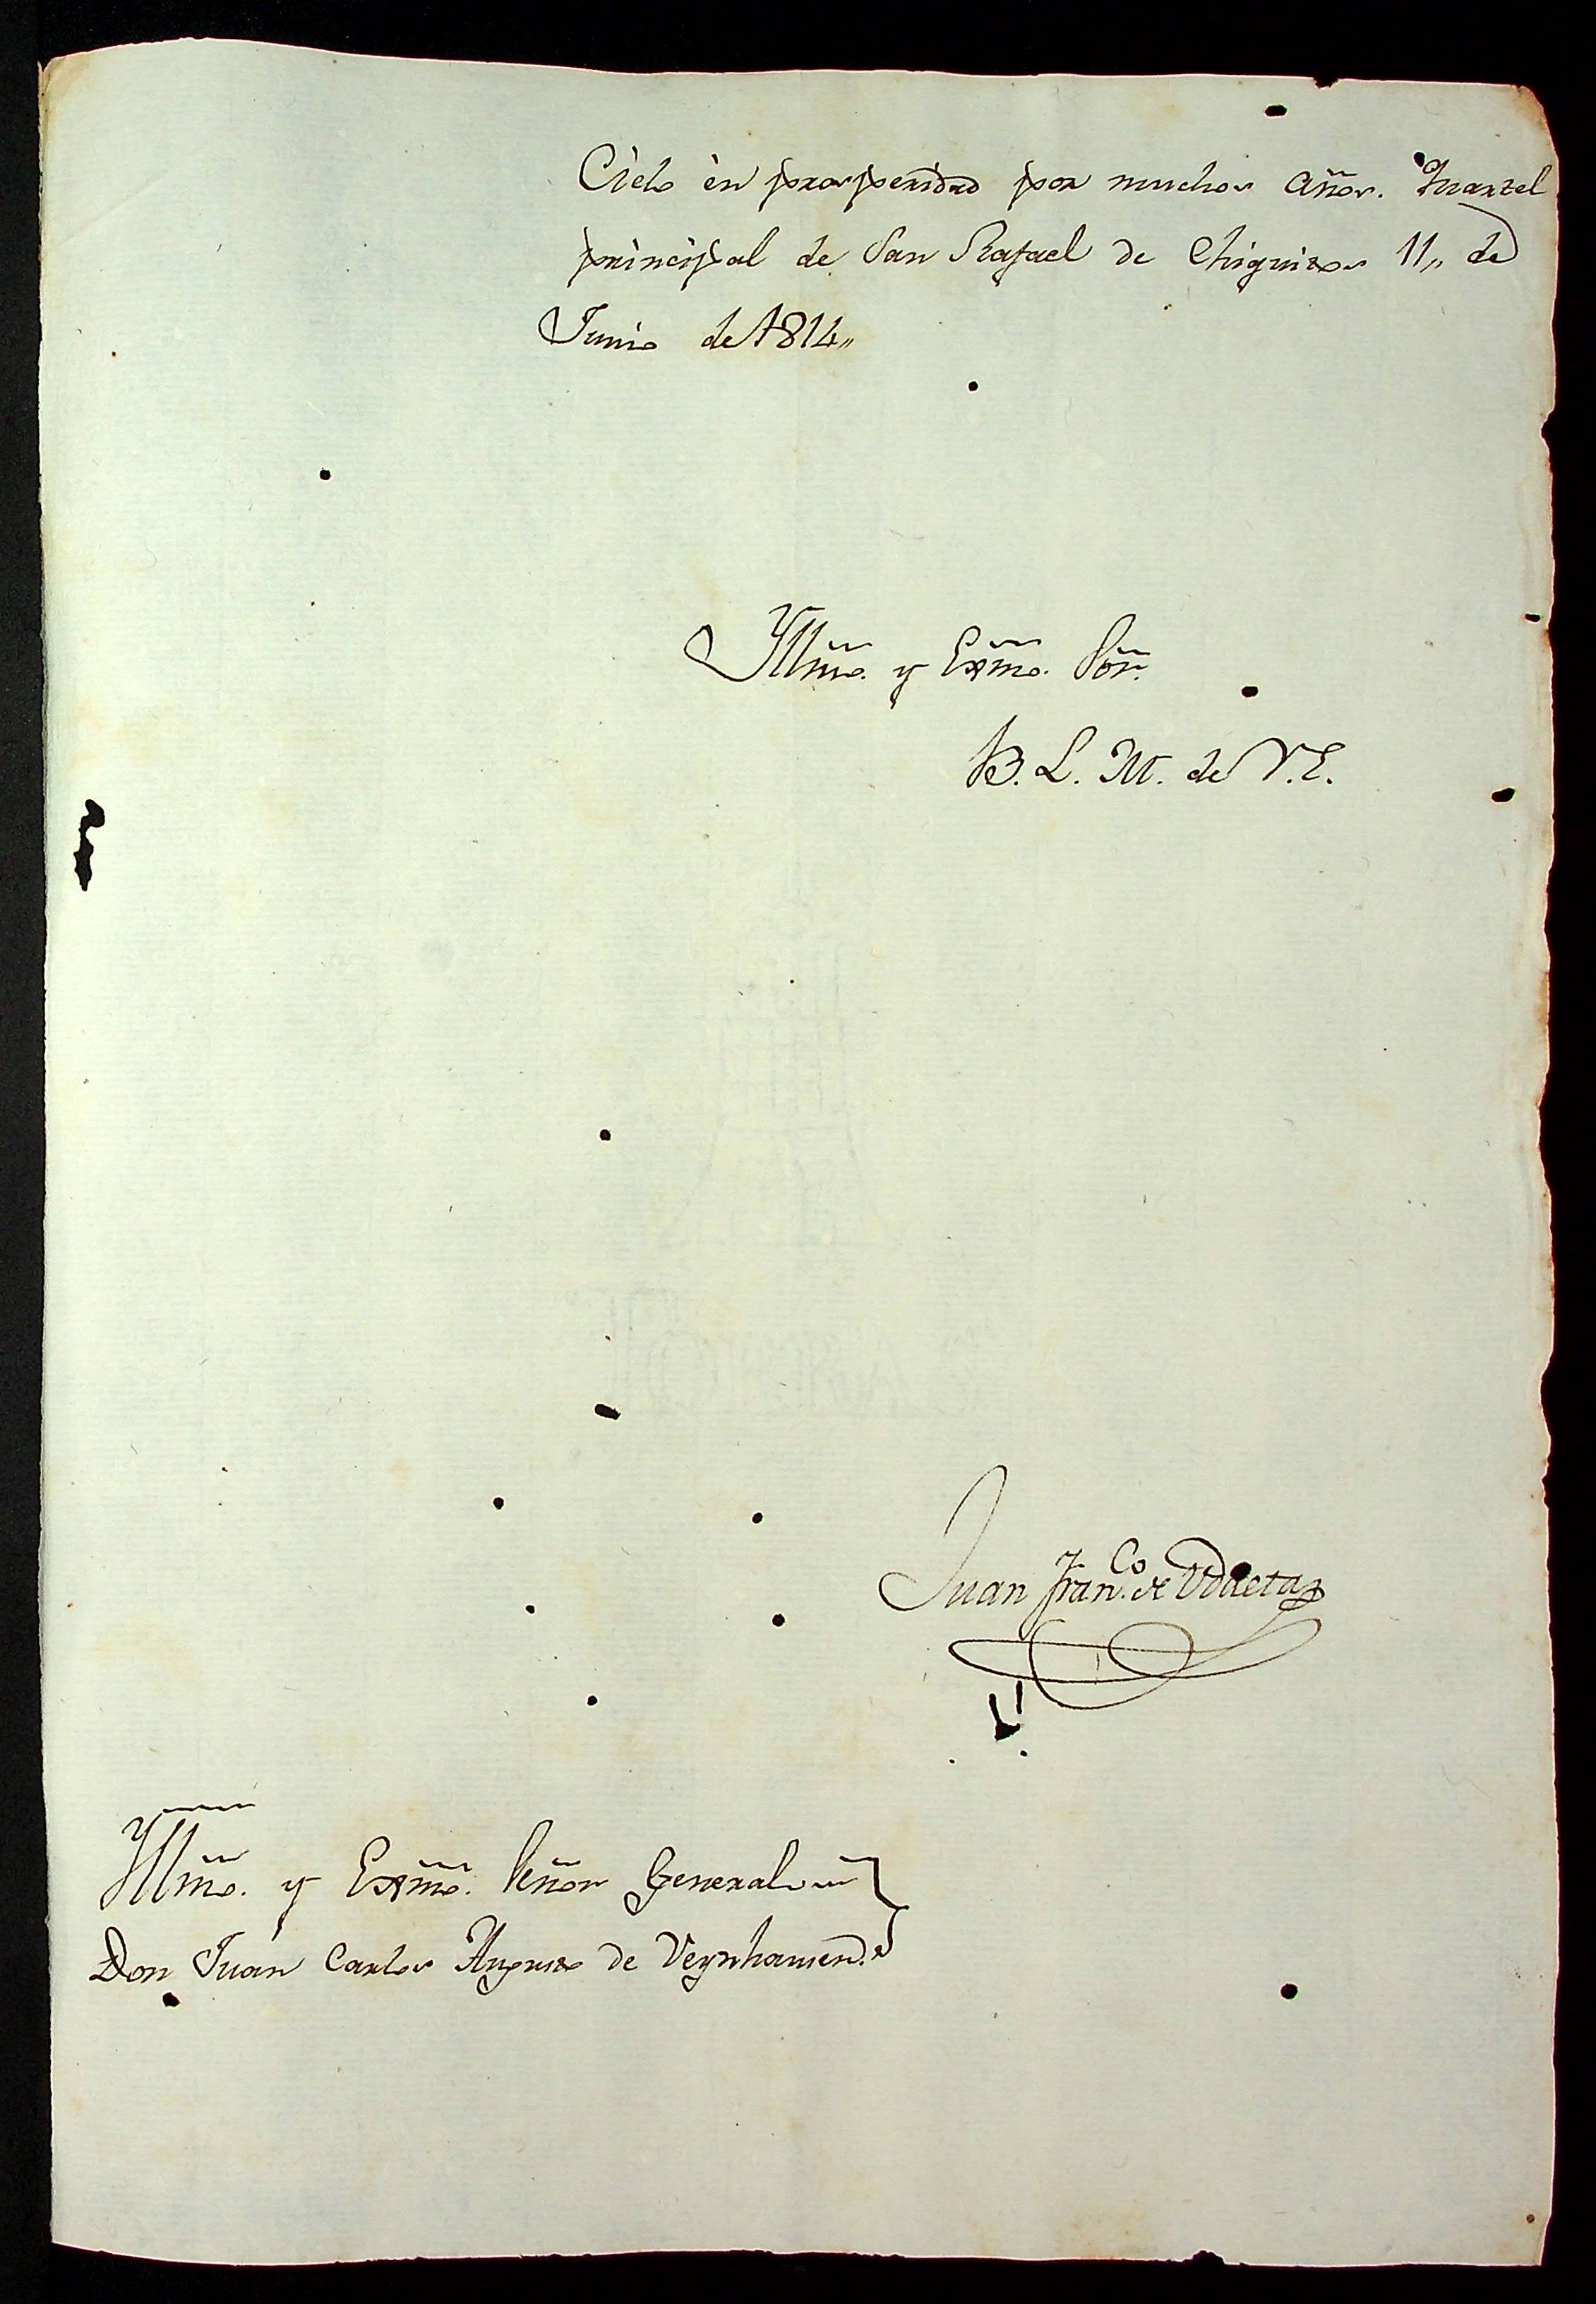 Cielo en prosperidad por muchos años. Quartel
principal de San Rafael de Chiquitos 11,, de
Junio de 1814,,
Yllm̃o. y Exm̃o. Sõr.
B. L. M. de V.E.
Juan Fran.co de Udaeta
Yllm̃o. y Exm̃o. Señor General
Don Juan Carlos Augusto de Veynhausen.